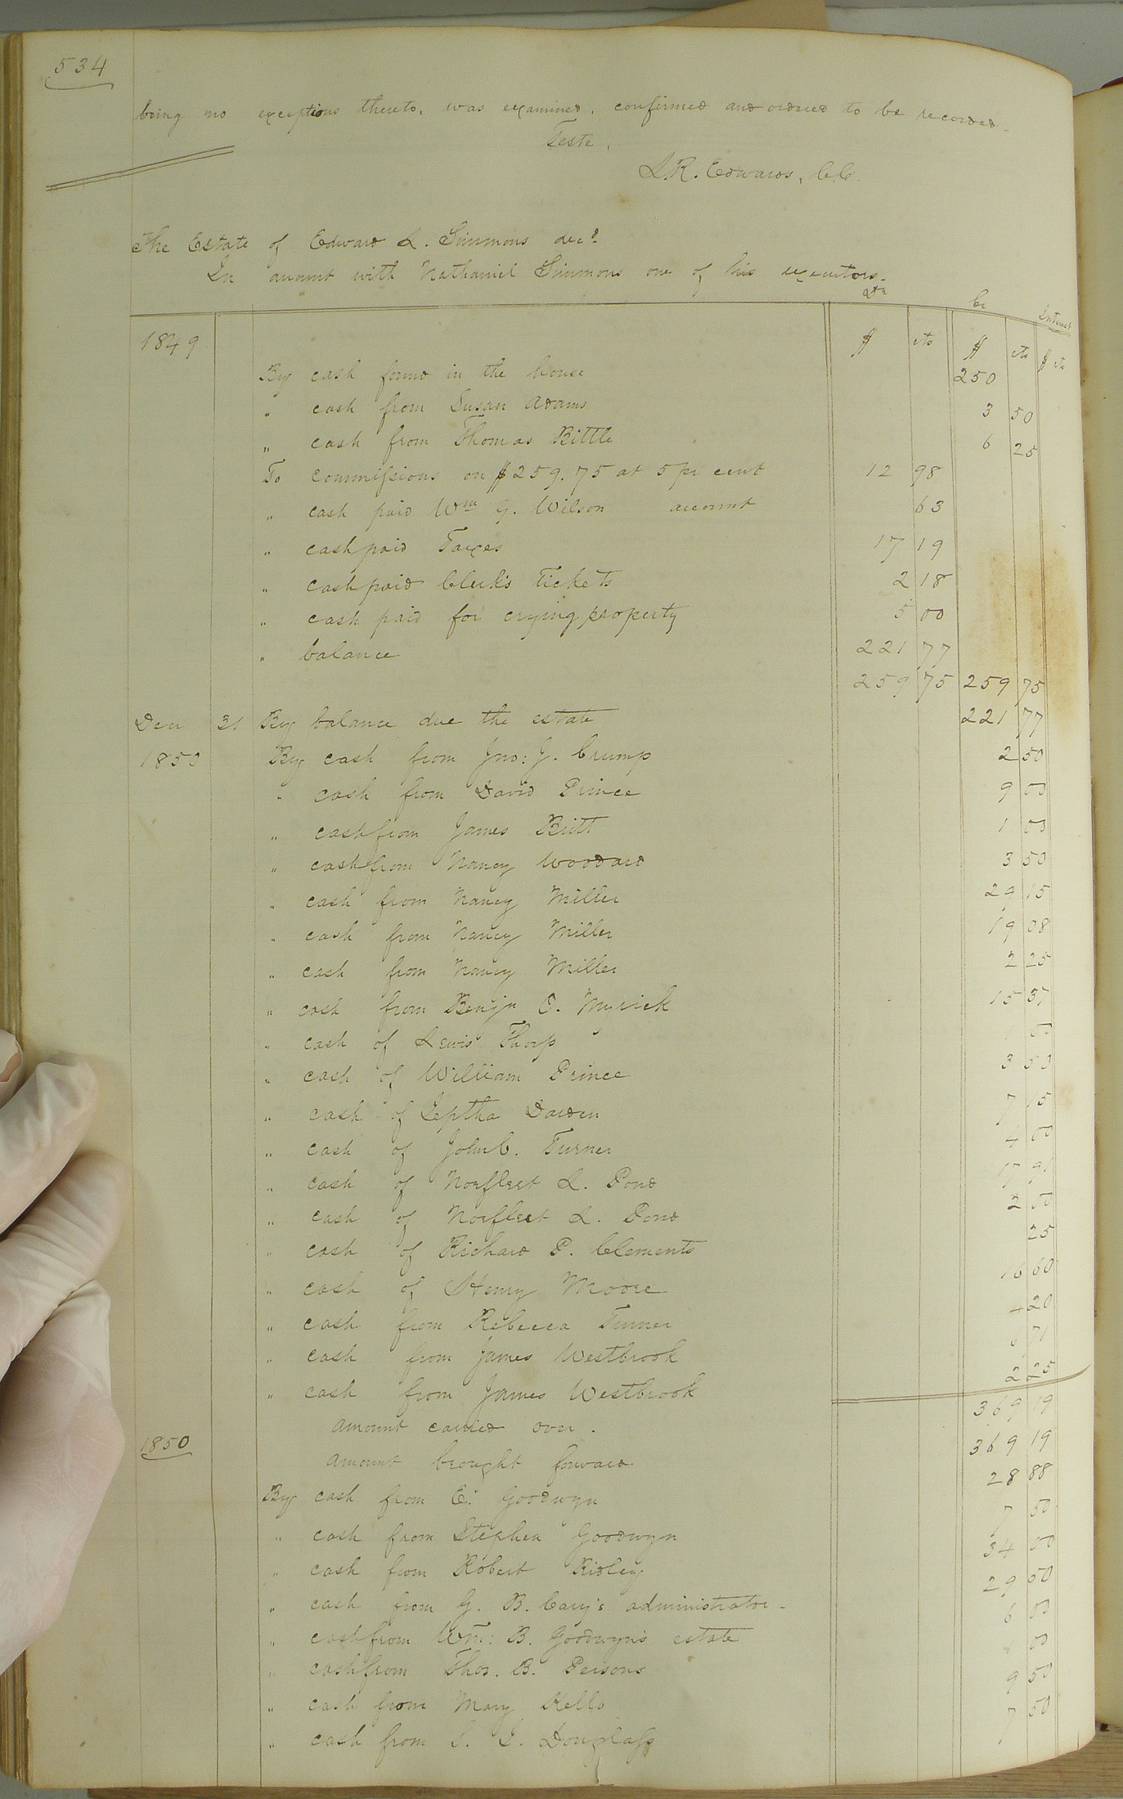 534
being no exceptions thereto, was examined, confirmed and ordered to be recorded.
Teste,
L.R. Edwards, C.C.
The Estate of Edward L. Simmons decd
In account with Nathaniel Simmons one of his executors.
Dr Cr Interest
1849 $ cts $ cts $ cts
By cash found in the house 250
" cash from Susan Adams 3 50
" cash from Thomas Bittle 6 25
To commissions on $259.75 at 5 pr cent 12 98
" cash paid Wm G. Wilson account 63
" cash paid Taxes 17 19
" cash paid Clerk's Tickets 2 18
" cash paid for crying property 5 00
" balance 221 77
259 75 259 75
Decr 31 By balance due the estate 221 77
1850 By cash from Jno: J. Crump 2 50
" cash from David Prince 9 00
" cash from James Britt 1 00
" cash from Nancy Woodard 3 50
" cash from Nancy Miller 29 15
" cash from Nancy Miller 19 08
" cash from Nancy Miller 2 25
" cash from Benjn E. 15 37
" cash of Lewis Thorp 1 00
" cash of William Prince 3 50
" cash of Jeptha Darden 7 15
" cash of John C. Turner 4 00
" cash of Norfleet L. Pond 17 91
" cash of Norfleet L. Pond 2 00
" cash of Richard P. Clements 25
" cash of Henry Moore 16 60
" cash from Rebecca Turner 20
" cash from James Westbrook 71
" cash from James Westbrook 2 25
amount carried over. 369 19
1850 amount brought forward 369 19
By cash from E. Goodwyn 28 88
" cash from Stephen Goodwyn 7 50
" cash from Robert Ridley 34 00
" cash from G. B. Cary's administrator - 29 50
" cash from Wm: B. Goodwyn's estate 6 00
" cash from Thos. B. Persons 00
" cash from Mary Kello 9 50
" cash from Douglass 7 50